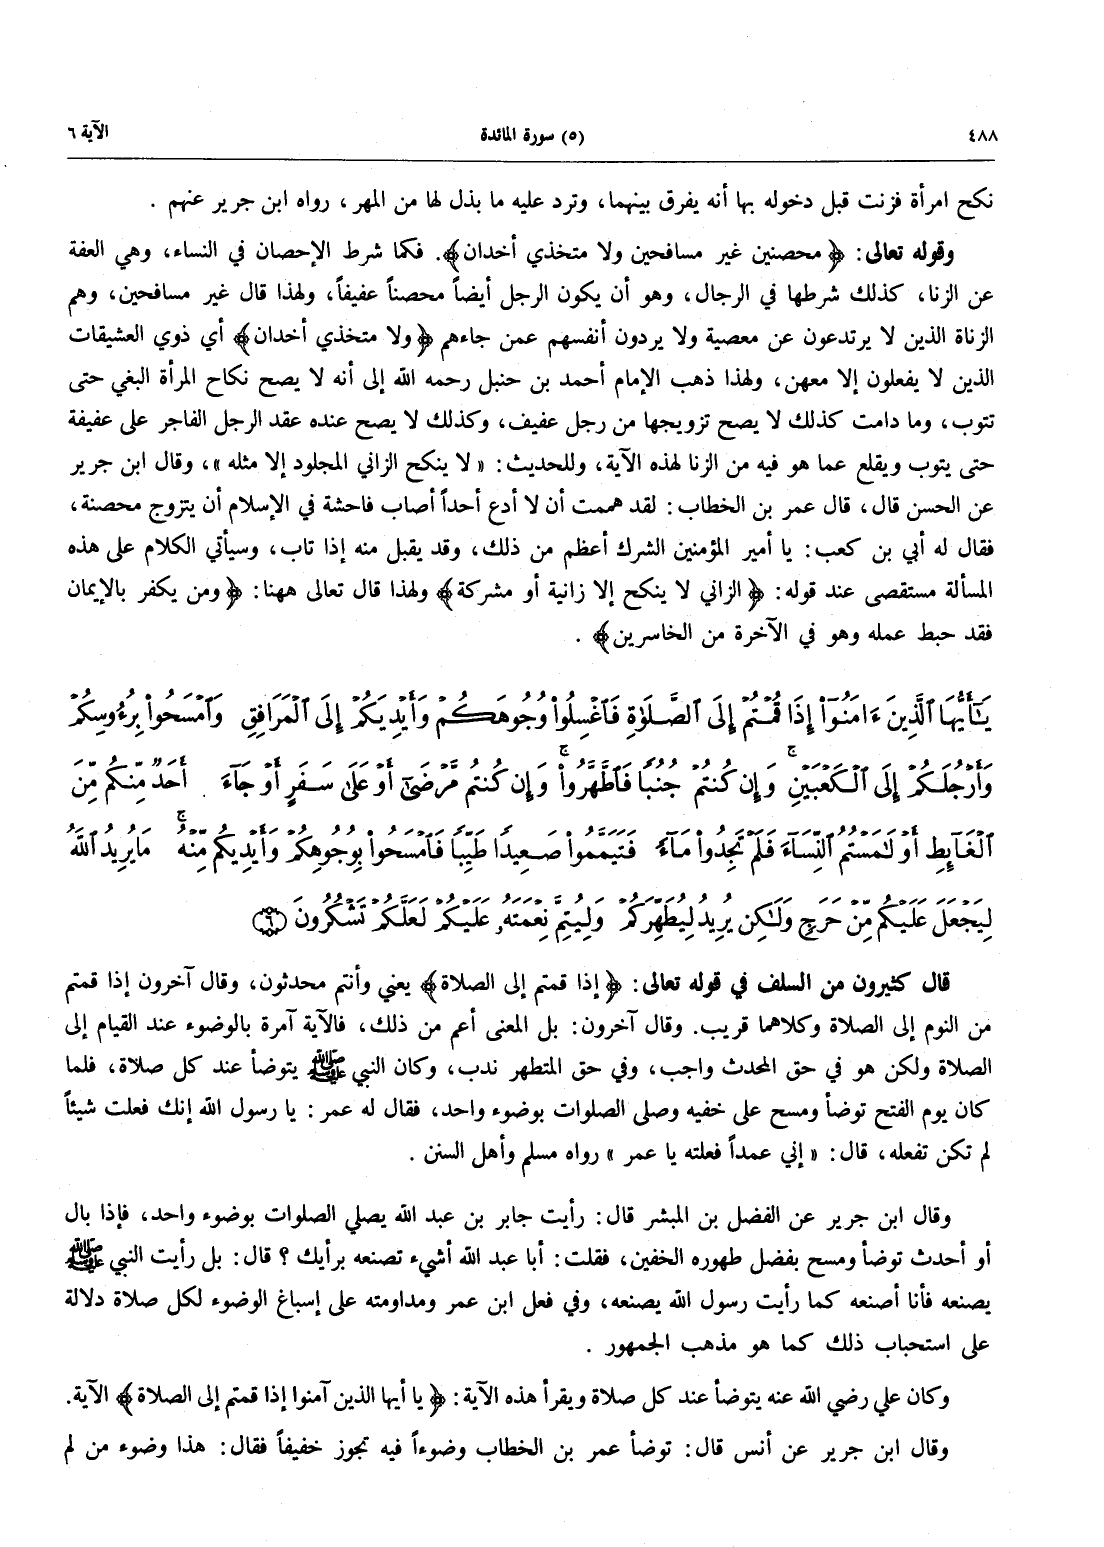 ٤٨٨ (٥) سورة المائدة الآية ٦
نكح امرأة فزنت قبل دخوله بها أنه يفرق بينهما، وترد عليه ما بذل لها من المهر، رواه ابن جرير عنهم .
وقوله تعالى: ﴿محصنين غير مسافحين ولا متخذي أخدان﴾. فكما شرط الإحصان في النساء، وهي العفة
عن الزنا، كذلك شرطها في الرجال، وهو أن يكون الرجل أيضاً محصناً عفيفاً، ولهذا قال غير مسافحين، وهم
الزناة الذين لا يرتدعون عن معصية ولا يردون أنفسهم عمن جاءهم ﴿ولا متخذي أخدان﴾ أي ذوي العشيقات
الذين لا يفعلون إلا معهن، ولهذا ذهب الإمام أحمد بن حنبل رحمه الله إلى أنه لا يصح نكاح المرأة البغي حتى
تتوب، وما دامت كذلك لا يصح تزويجها من رجل عفيف، وكذلك لا يصح عنده عقد الرجل الفاجر على عفيفة
حتى يتوب ويقلع عما هو فيه من الزنا لهذه الآية، وللحديث: « لا ينكح الزاني المجلود إلا مثله »، وقال ابن جرير
عن الحسن قال، قال عمر بن الخطاب: لقد هممت أن لا أدع أحداً أصاب فاحشة في الإسلام أن يتزوج محصنة،
فقال له أبي بن كعب: يا أمير المؤمنين الشرك أعظم من ذلك، وقد يقبل منه إذا تاب، وسيأتي الكلام على هذه
المسألة مستقصى عند قوله: ﴿الزاني لا ينكح إلا زانية أو مشركة﴾ ولهذا قال تعالى ههنا: ﴿ومن يكفر بالإيمان
فقد حبط عمله وهو في الآخرة من الخاسرين﴾ .
يَـٰٓأَيُّهَا ٱلَّذِينَ ءَامَنُوٓا۟ إِذَا قُمْتُمْ إِلَى ٱلصَّلَوٰةِ فَٱغْسِلُوا۟ وُجُوهَكُمْ وَأَيْدِيَكُمْ إِلَى ٱلْمَرَافِقِ وَٱمْسَحُوا۟ بِرُءُوسِكُمْ
وَأَرْجُلَكُمْ إِلَى ٱلْكَعْبَيْنِ ۚ وَإِن كُنتُمْ جُنُبًا فَٱطَّهَّرُوا۟ ۚ وَإِن كُنتُم مَّرْضَىٰٓ أَوْ عَلَىٰ سَفَرٍ أَوْ جَآءَ أَحَدٌ مِّنكُم مِّنَ
ٱلْغَآئِطِ أَوْ لَـٰمَسْتُمُ ٱلنِّسَآءَ فَلَمْ تَجِدُوا۟ مَآءً فَتَيَمَّمُوا۟ صَعِيدًا طَيِّبًا فَٱمْسَحُوا۟ بِوُجُوهِكُمْ وَأَيْدِيكُم مِّنْهُ ۚ مَا يُرِيدُ ٱللَّهُ
لِيَجْعَلَ عَلَيْكُم مِّنْ حَرَجٍ وَلَـٰكِن يُرِيدُ لِيُطَهِّرَكُمْ وَلِيُتِمَّ نِعْمَتَهُۥ عَلَيْكُمْ لَعَلَّكُمْ تَشْكُرُونَ ﴿٦﴾
قال كثيرون من السلف في قوله تعالى: ﴿إذا قمتم إلى الصلاة﴾ يعني وأنتم محدثون، وقال آخرون إذا قمتم
من النوم إلى الصلاة وكلاهما قريب. وقال آخرون: بل المعنى أعم من ذلك، فالآية آمرة بالوضوء عند القيام إلى
الصلاة ولكن هو في حق المحدث واجب، وفي حق المتطهر ندب، وكان النبي ﷺ يتوضأ عند كل صلاة، فلما
كان يوم الفتح توضأ ومسح على خفيه وصلى الصلوات بوضوء واحد، فقال له عمر: يا رسول الله إنك فعلت شيئاً
لم تكن تفعله، قال: « إني عمداً فعلته يا عمر » رواه مسلم وأهل السنن .
وقال ابن جرير عن الفضل بن المبشر قال: رأيت جابر بن عبد الله يصلي الصلوات بوضوء واحد، فإذا بال
أو أحدث توضأ ومسح بفضل طهوره الخفين، فقلت: أبا عبد الله أشيء تصنعه برأيك ؟ قال: بل رأيت النبي ﷺ
يصنعه فأنا أصنعه كما رأيت رسول الله يصنعه، وفي فعل ابن عمر ومداومته على إسباغ الوضوء لكل صلاة دلالة
على استحباب ذلك كما هو مذهب الجمهور .
وكان علي رضي الله عنه يتوضأ عند كل صلاة ويقرأ هذه الآية: ﴿يا أيها الذين آمنوا إذا قمتم إلى الصلاة﴾ الآية.
وقال ابن جرير عن أنس قال: توضأ عمر بن الخطاب وضوءاً فيه تجوز خفيفاً فقال: هذا وضوء من لم